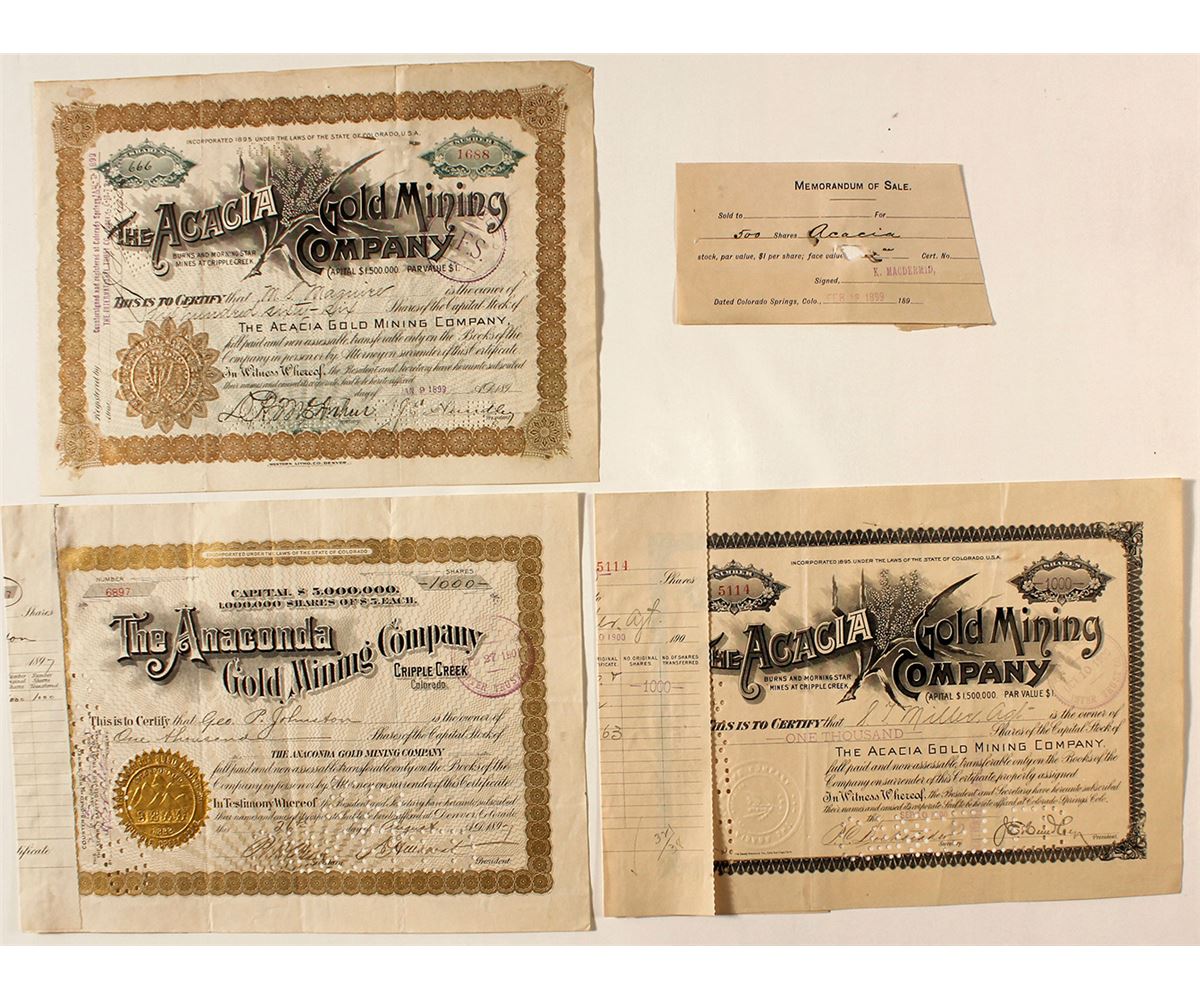 INCORPORATED 1895 UNDER THE LAWS OF THE STATE OF COLORADO, U.S.A.
SHARES
666
NUMBER
1688
THE ACACIA Gold Mining
COMPANY
BURNS AND MORNING STAR
MINES AT CRIPPLE CREEK
CAPITAL $1,500,000. PAR VALUE $1.
THIS IS TO CERTIFY that Maguire is the owner of
Six hundred sixty-six Shares of the Capital Stock of
THE ACACIA GOLD MINING COMPANY,
full paid and non-assessable, transferable only on the Books of the
Company in person or by Attorney on surrender of this Certificate
In Witness Whereof, the President and Secretary have hereunto subscribed
their names and caused its corporate Seal to be hereto affixed
day of JAN 9 1899 A.D. 189
President
Countersigned and registered at Colorado Springs
Registered by
WESTERN LITHO. CO. DENVER.
MEMORANDUM OF SALE.
Sold to For
500 Shares Acacia
stock, par value, $1 per share; face value Cert. No.
Signed, K. MACDERMID,
Dated Colorado Springs, Colo., FEB 1899 189
INCORPORATED UNDER THE LAWS OF THE STATE OF COLORADO
NUMBER
6897
SHARES
-1000-
CAPITAL $ 5,000,000.
1,000,000 SHARES OF $5. EACH.
The Anaconda
Gold Mining Company
CRIPPLE CREEK
Colorado.
This is to Certify that Geo. P. Johnston is the owner of
One thousand Shares of the Capital Stock of
THE ANACONDA GOLD MINING COMPANY
full paid and non-assessable, transferable only on the Books of the
Company in person or by Attorney on surrender of this Certificate
In Testimony Whereof the President and Secretary have hereunto subscribed
their names and caused its corporate Seal to be hereto affixed at Denver, Colorado
this day of August A.D. 1897
President
SEAL
Shares
1897
5114
Shares
Agt.
1900 190
NO. ORIGINAL NO. OF SHARES
SHARES TRANSFERRED
-1000-
63
INCORPORATED 1895 UNDER THE LAWS OF THE STATE OF COLORADO, U.S.A.
NUMBER
5114
SHARES
-1000-
THE ACACIA Gold Mining
COMPANY
BURNS AND MORNING STAR
MINES AT CRIPPLE CREEK
CAPITAL $1,500,000. PAR VALUE $1.
THIS IS TO CERTIFY that Miller Agt is the owner of
ONE THOUSAND Shares of the Capital Stock of
THE ACACIA GOLD MINING COMPANY.
full paid and non-assessable, transferable only on the Books of the
Company on surrender of this Certificate properly assigned.
In Witness Whereof, the President and Secretary have hereunto subscribed
their names and caused its corporate Seal to be hereto affixed at Colorado Springs Colo.
the SEP 10
President